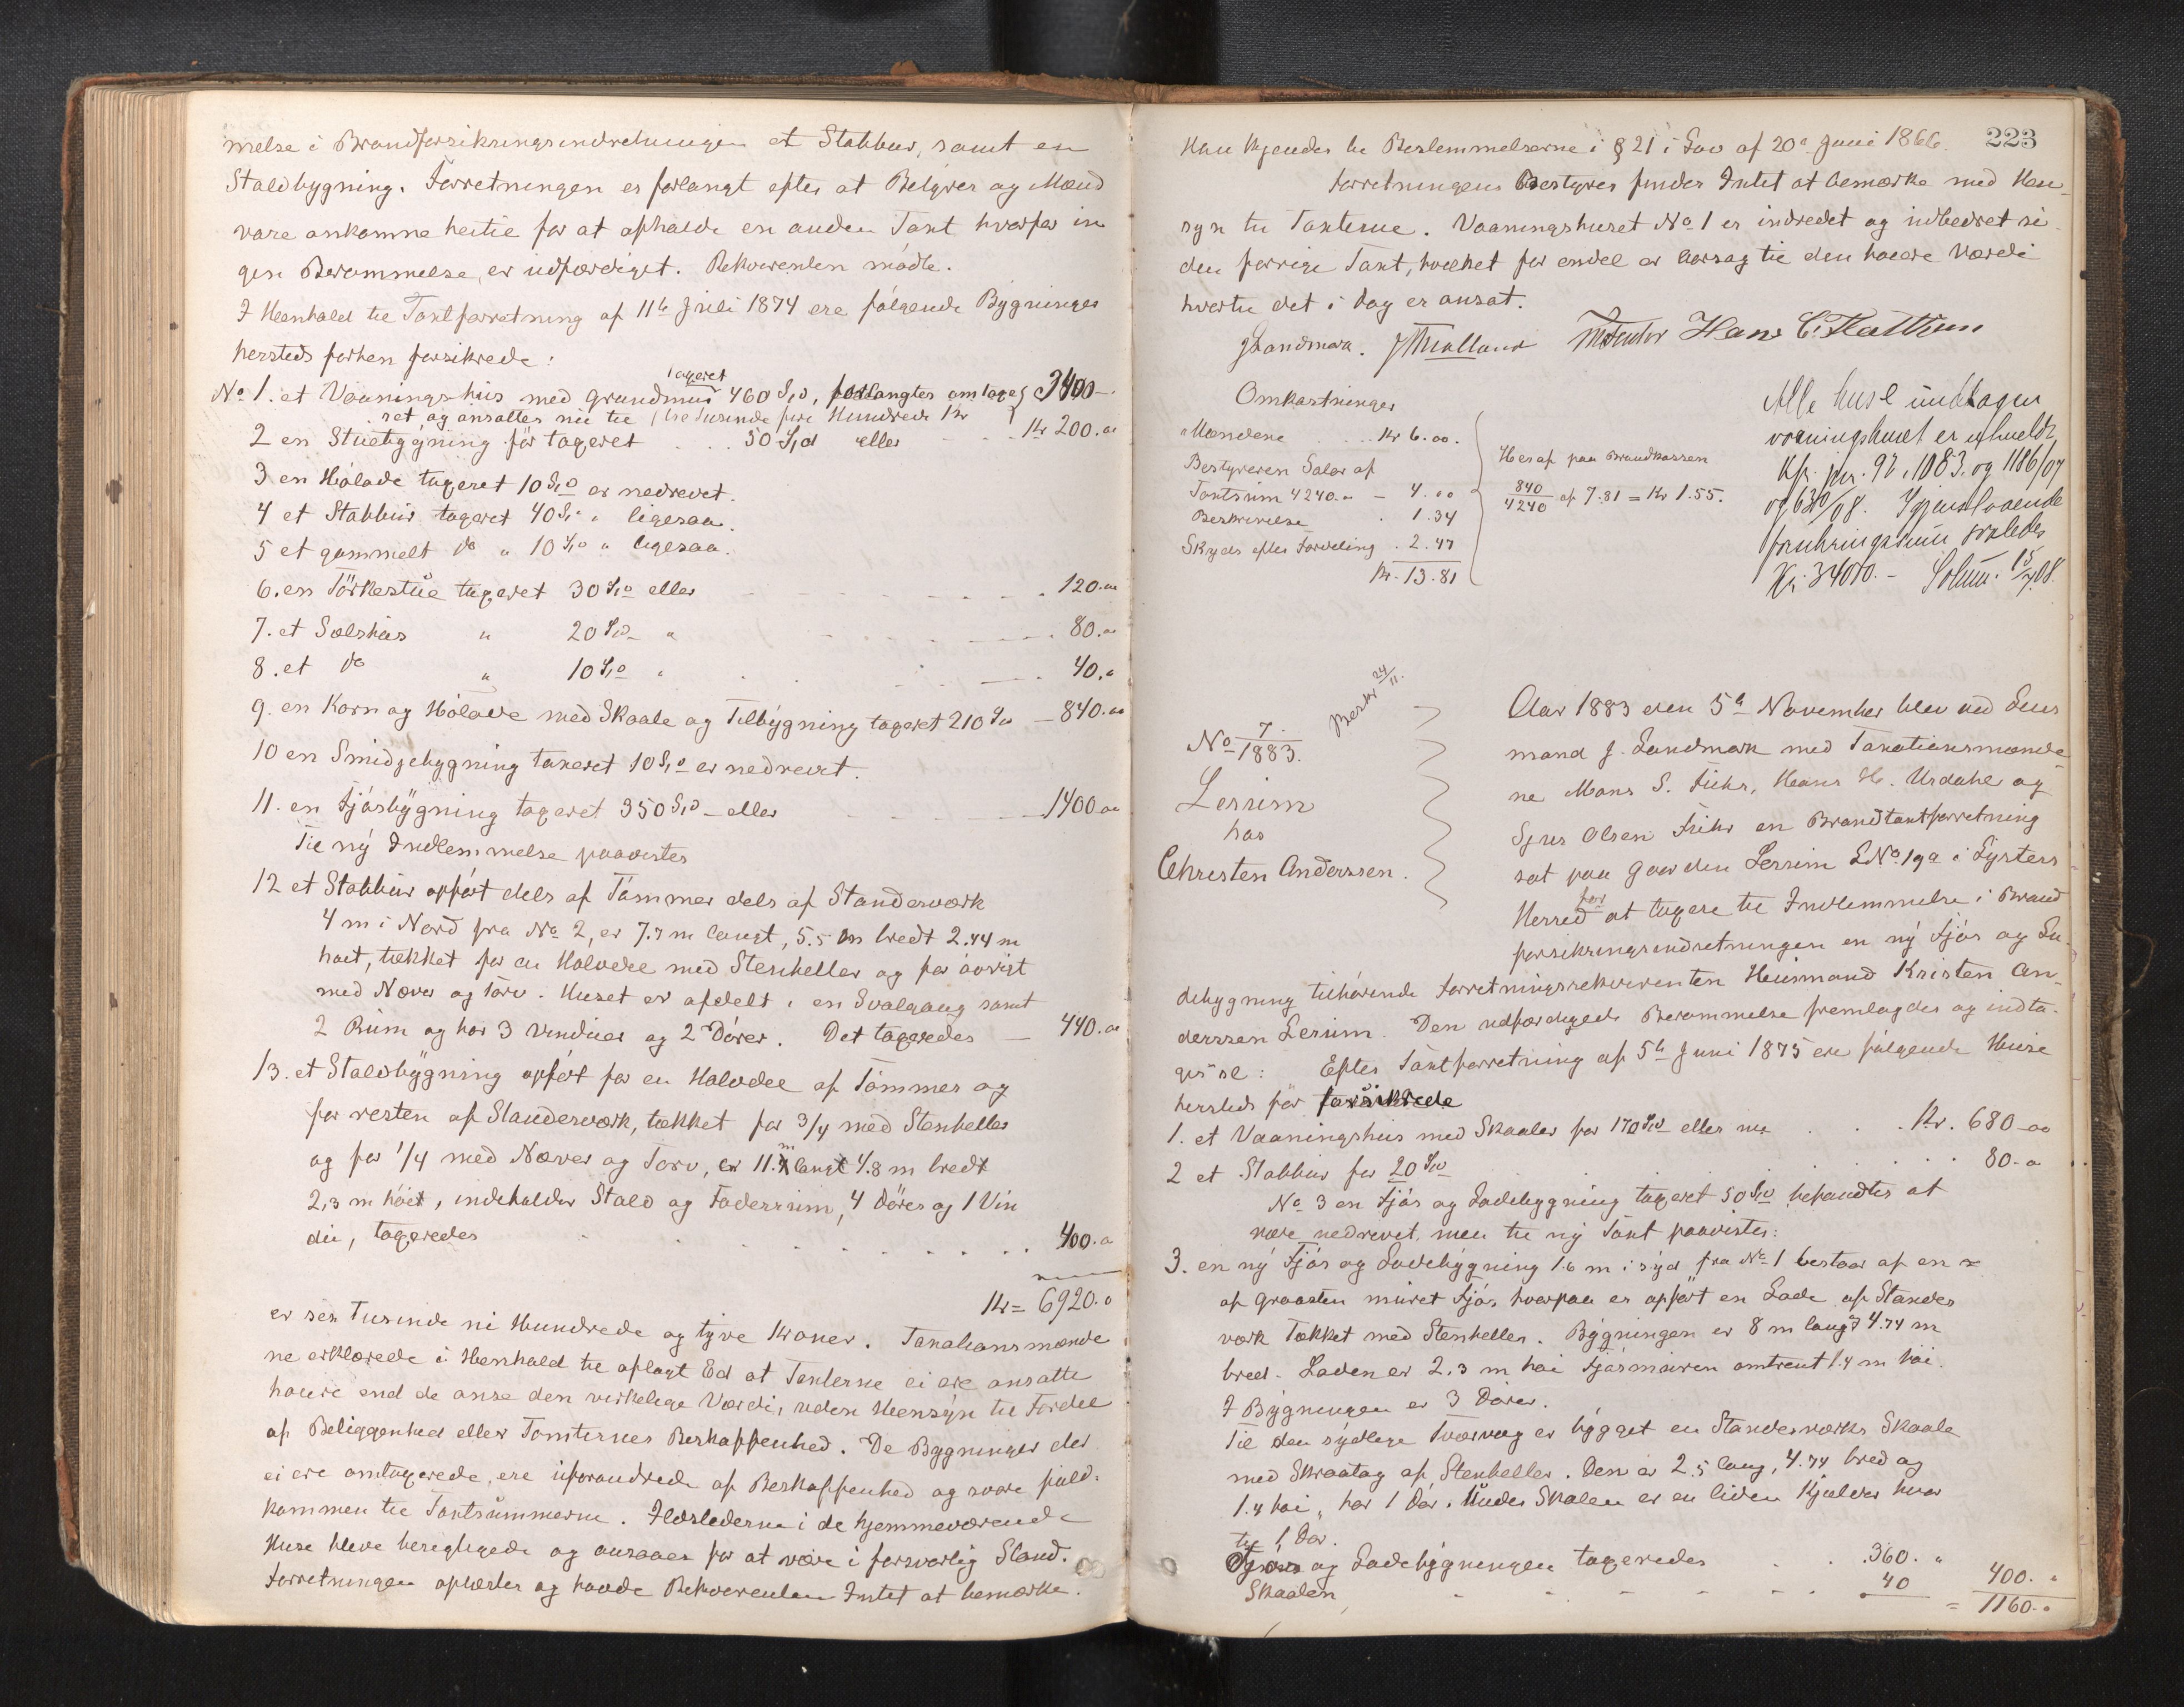 melse i Brandforsikringsindretningen et Stabbur, samt en
Staldbygning. Forretningen er forlangt efter at Betyrer og Mænd
vare ankomne hertil for at afholde en anden Taxt hvorfor in
gen Berammelse er udfærdiget. Rekvirenten mødte.
I Henhold til Taxtforretning af 11te Juli 1874 ere følgende Bygninger
hersteds forhen forsikrede:
No 1. et Vaaningshus med Grundmur taxeret 460 Spd, forlangtes omtaxe 3400-
ret og ansattes nu til tre Tusinde fire Hundrede Kr
2 en Stuebygning før taxeret 50 Spd eller Kr 200.00
3 en Hølade taxeret 10 Spd er nedrevet.
4 et Stabbur taxeret 40 Spd " ligesaa.
5 et gammelt do " 10 Spd " ligesaa.
6. en Tørkestue taxeret 30 Spd eller 120.00
7. et Sælshus " 20 Spd " 80.00
8. et do " 10 Spd " 40."
9. en Korn og Hølade med Skaale og Tilbygning taxeret 210 Spd — 840.00
10 en Smidjebygning taxeret 10 Spd er nedrevet.
11. en Fjøsbygning taxeret 350 Spd - eller 1400.00
Til ny Indlemmelse paavistes
12 et Stabbur opført dels af Tømmer dels af Standerværk
4 m i Nord fra No 2, er 7.7 m langt, 5.5 m bredt 2.44 m
høit, tækket for en Halvdel med Stenheller og for øvrigt
med Næver og Torv. Huset er afdelt i en Svalgang samt
2 Rum og har 3 Vinduer og 2 Dører. Det taxeredes — 440.00
13. et Staldbygning opført for en Halvdel af Tømmer og
for resten af Standerværk, tækket for 3/4 med Stenheller
og for 1/4 med Næver og Torv, er 11. m langt 4.8 m bredt
2,3 m høit, indeholder Stald og Foderrum, 4 Dører og 1 Vin
du, taxeredes 400."
Kr = 6920."
er sex Tusinde ni Hundrede og tyve Kroner. Taxationsmænde
ne erklærede i Henhold til aflagt Ed at Taxterne ei ere ansatte
høiere end de anse den virkelige Værdi, uden Hensyn til Fordel
af Beliggenhed eller Tomternes Beskaffenhed. De Bygninger der
ei ere omtaxerede, ere uforandrede af Beskaffenhed og svare fuld-
kommen til Taxtsummerne. Ildstederne i de hjemmeværende
Huse bleve besigtigede og ansaaes for at være i forsvarlig Stand.
Forretningen oplæstes og havde Rekvirenten Intet at bemærke.
223
Han kjender til Bestemmelserne i § 21 i Lov af 20de Juni 1866.
Forretningens Bestyrer finder Intet at bemærke med Hen-
syn til Taxterne. Vaaningshuset No 1 er indredet og udbedret si
den forrige Taxt, hvilket for endel er Aarsag til den høiere Værdi
hvortil det i Dag er ansat.
JLandmark.
Omkostninger
Mændene Kr 6.00.
Bestyreren Salær af
Taxtsum 4240." - 4.00
Beskrivelse . 1.34
Skyds efter Fordeling . 2.47
Kr. 13.81
Heraf paa Brandkassen
840/4240 af 7.81 = Kr 1.55.
Alle huse undtagen
vaaningshuset er udmeldt
Kfr. jnr. 92, 1083. og 1186/07
og 630/08. Igjenstaaende
forsikringssum saaledes
Kr. 3400.- Solum. 15/7 08.
Beskr 24/11.
No 7/1883.
Lerum
hos
Christen Anderssen.
Aar 1883 den 5te November blev ved Lens
mand J. Landmark med Taxationsmænde-
ne Mons S. Fuhr, Hans H. Urdahl og
Sjur Olsen Fuhr en Brandtaxtforretning
sat paa Gaarden Lerum LNo 19a i Lysters
Herred for at taxere til Indlemmelse i Brand
forsikringsindretningen en ny Fjøs og La-
debygning tilhørende Forretningsrekvirenten Husmand Kristen An-
derssen Lerum. Den udfærdigede Berammelse fremlagdes og indta-
ges sl: Efter Taxtforretning af 5te Juni 1875 ere følgende Huse
hersteds før forsikrede
1. et Vaaningshus med Skaaler for 170 Spd eller nu Kr. 680-00
2 et Stabbur for 20 Spd 80-"
No 3 en Fjøs og Ladebygning taxeret 50 Spd befandtes at
være nedrevet, men til ny Taxt paavistes:
3. en ny Fjøs og Ladebygning 16 m i syd fra No 1 bestaar af en
af Graasten muret Fjøs, hvorpaa er opført en Lade af Stander
værk Tækket med Stenheller. Bygningen er 8 m lang 4.74 m
bred. Laden er 2.3 m høi Fjøsmuren omtrent 1.4 m høi.
I Bygningen er 3 Dører.
Til den sydlige Tværvæg er bygget en Standerværks Skaale
med Skraatag af Stenheller. Den er 2.5 lang, 4.74 bred og
1.4 høi, har 1 Dør. Under Skalen er en liden Kjelder hvor
til 1 Dør.
Fjøs og Ladebygningen taxeredes 360."
Skaalen 40 400."
= 1160."